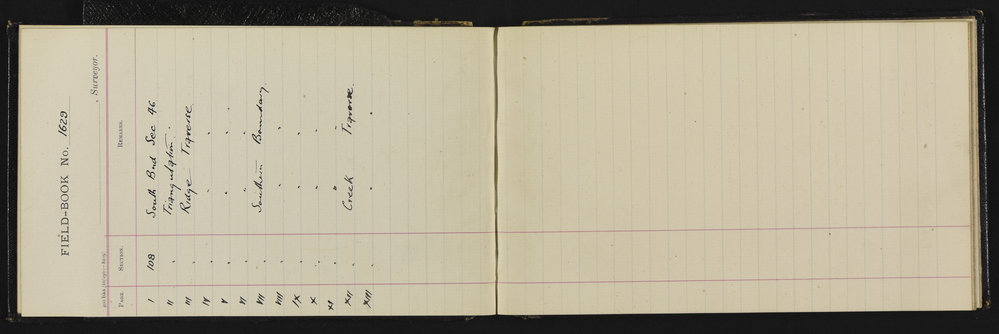 FIELD-BOOK No. 1629
, Surveyor.
PAGE. SECTION. REMARKS.
I 108 South Bnd Sec 46
II " Triangulation.
III " Ridge Traverse
IV " " "
V " " "
VI " " "
VII " Southern Boundary
VIII " " "
IX " " "
X " " "
XI " " "
XII " Creek Traverse.
XIII " " "